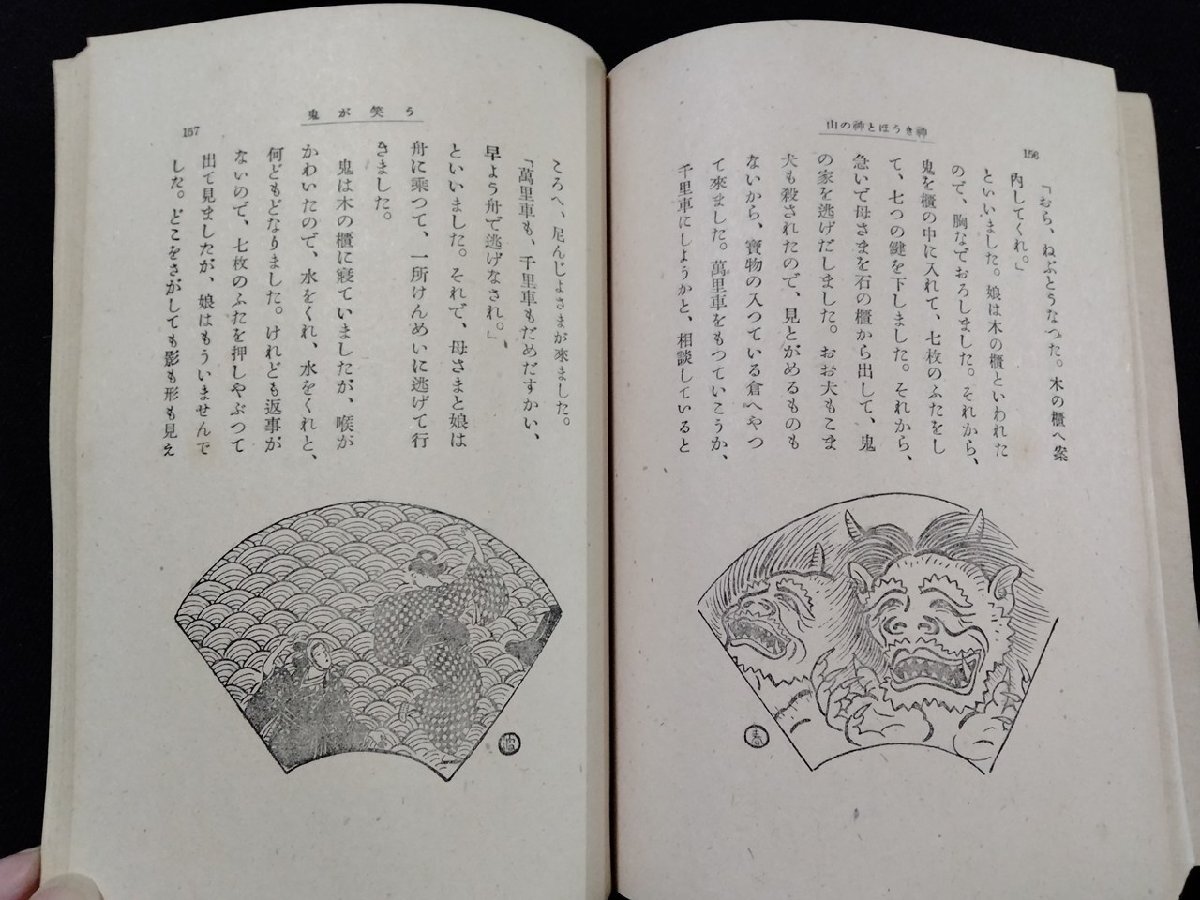 山の神とほうき神
156
「むら、ねぶとうなつた。木の櫃へ案
内してくれ。」
といいました。娘は木の櫃といわれた
ので、胸なでおろしました。それから、
鬼を櫃の中に入れて、七枚のふたをし
て、七つの鍵を下しました。それから、
急いで母さまを石の櫃から出して、鬼
の家を逃げだしました。おお犬もこま
犬も殺されたので、見とがめるものも
ないから、寳物の入つている倉へやつ
て來ました。萬里車をもつていこうか、
千里車にしようかと、相談していると
鬼が笑う
157
ころへ、尼んじよさまが來ました。
「萬里車も、千里車もだめだすかい、
早よう舟で逃げなされ。」
といいました。それで、母さまと娘は
舟に乘つて、一所けんめいに逃げて行
きました。
鬼は木の櫃に寢ていましたが、喉が
かわいたので、水をくれ、水をくれと、
何どもどなりました。けれども返事が
ないので、七枚のふたを押しやぶつて
出て見ましたが、娘はもういませんで
した。どこをさがしても影も形も見え